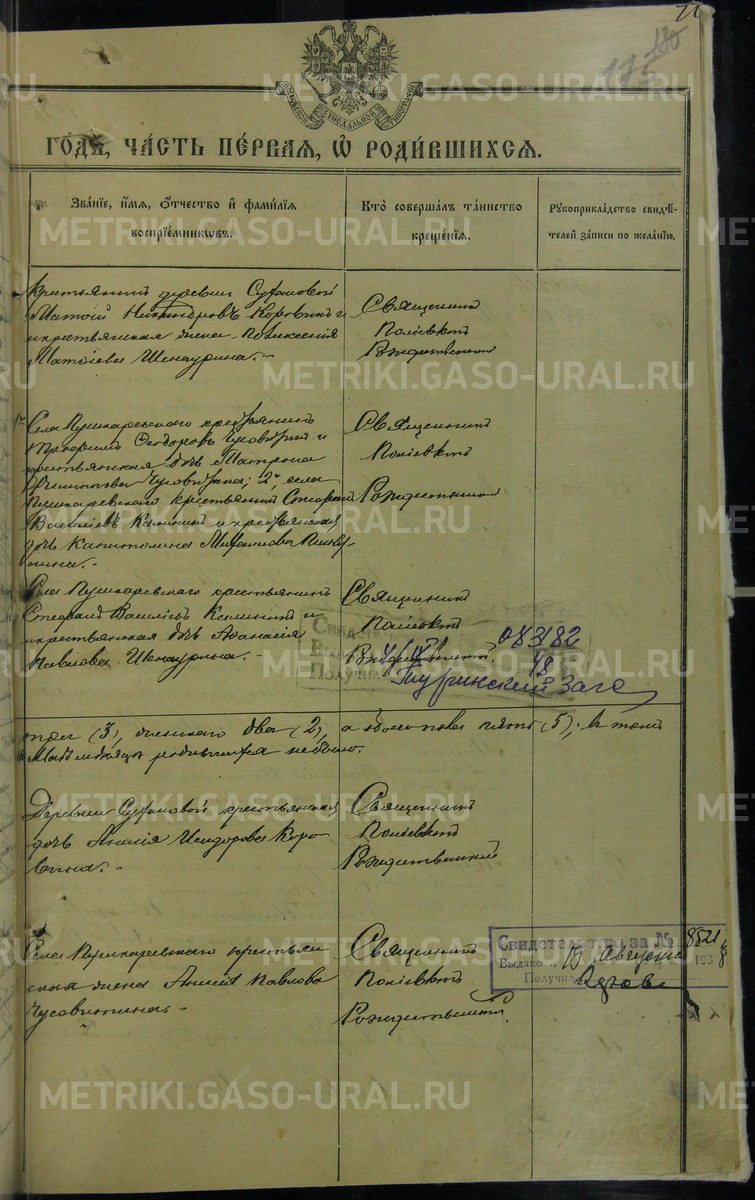 175
ГОДЪ, ЧАСТЬ ПЕРВАЯ, Ѡ РОДИВШИХСЯ.
Званіе, имя, отчество и фамилія воспріемниковъ.
Кто совершалъ таинство крещенія.
Рукоприкладство свидѣтелей записи по желанію.
Крестьянинъ деревни
Матѳій Никандровъ Коровинъ и
крестьянская жена
Матѳіева Шенаурина.
Священникъ
Поліевктъ
Рождественскій
Села Пушкаревского крестьянинъ
Ѳеодоровъ Чусовитинъ и
крестьянская дочь Матрона
Чусовитина; 2, села
Пушкаревского крестьянинъ Стефанъ
Василіевъ Калининъ и крестьянская
дочь Капитолина
Священникъ
Поліевктъ
Рождественскій
Села Пушкаревского крестьянинъ
Стефанъ Василіевъ Калининъ и
крестьянская дочь Аѳанасія
Павлова Шенаурина.
Священникъ
Поліевктъ
Рождественскій
Свидет
Выда
Получил
083182
48
Туринский Загс
(3), женскаго два (2), а обоего пять (5); въ томъ
родившихся не было.
Деревни крестьянская
дочь Анисія Исидорова Коровина.
Священникъ
Поліевктъ
Рождественскій
Села Пушкаревского крестьянская
жена Анисія Павлова
Чусовитина
Священникъ
Поліевктъ
Рождественскій
Свидетельство за № 8521
Выдано 13 Августа 193
Получил
METRIKI.GASO-URAL.RU